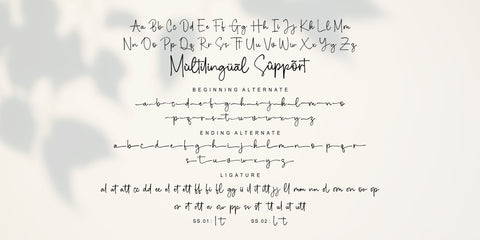 Aa Bb Cc Dd Ee Ff Gg Hh Ii Jj Kk Ll Mm
Nn Oo Pp Qq Rr Ss Tt Uu Vv Ww Xx Yy Zz
Mùltilingüal Sûppórt
BEGINNING ALTERNATE
a b c d e f g h i j k l m n o
p q r s t u v w x y z
ENDING ALTERNATE
a b c d e f g h i j k l m n o p q r
s t u v w x y z
LIGATURE
al at att cc dd ee el et ett ff fi fl gg ii il it itt jj ll mm nn ol om on oo op
or ot ott ow pp ss tt tt ul ut utt
SS.01 : lt SS.02 : lt